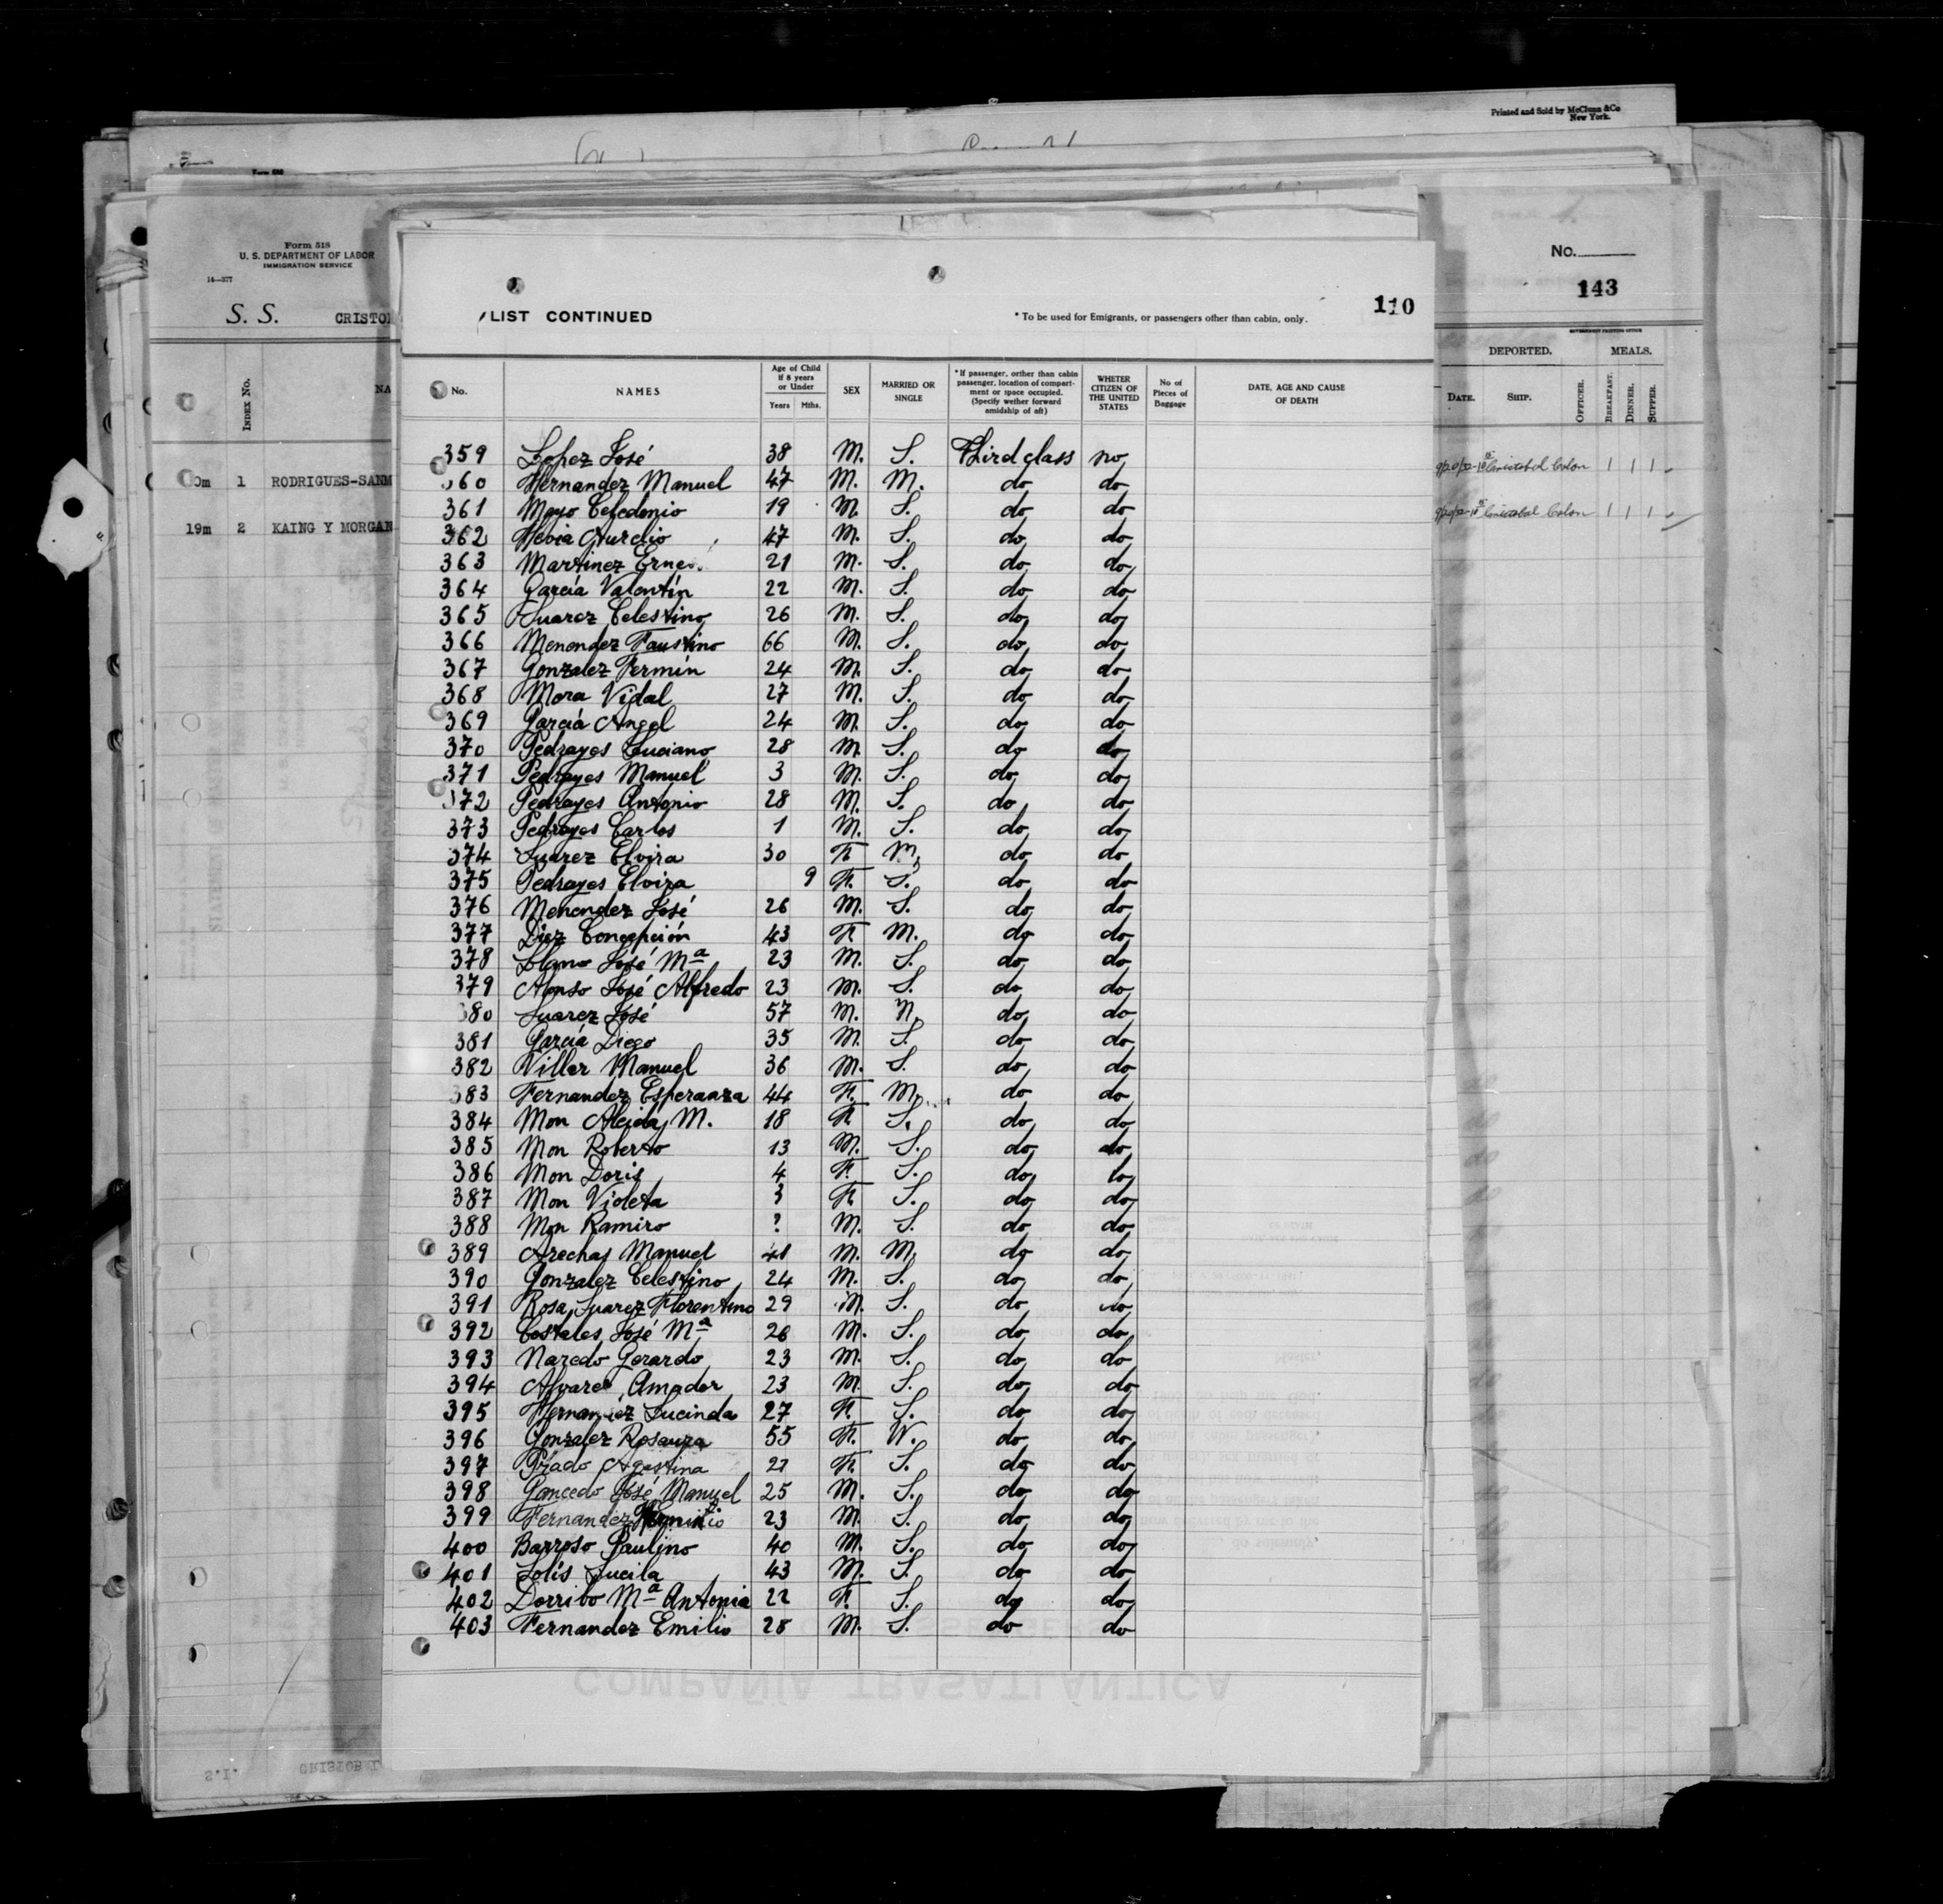 Printed and Sold by McClunn & Co
New York.
Form 518
U. S. DEPARTMENT OF LABOR
IMMIGRATION SERVICE
14—377
S. S. CRISTO
INDEX No.
NA
1 RODRIGUES-SANM
19m 2 KAING Y MORGAN
No.
143
GOVERNMENT PRINTING OFFICE
DEPORTED. MEALS.
DATE. SHIP. OFFICER. BREAKFAST. DINNER. SUPPER.
Cristobal Colon 1 1 1
Cristobal Colon 1 1 1
LIST CONTINUED
* To be used for Emigrants, or passengers other than cabin, only.
110
No. NAMES Age of Child If 8 years or Under Years Mths. SEX MARRIED OR SINGLE * If passenger, orther than cabin passenger, location of compartment or space occupied. (Specify wether forward amidship of aft) WHETER CITIZEN OF THE UNITED STATES No of Pieces of Baggage DATE, AGE AND CAUSE OF DEATH
359 Lopez José 38 M. S. Third class no
360 Hernandez Manuel 47 M. M. do do
361 Mayo Celedonio 19 M S. do do
362 Hevia Aurelio 47 M. S. do do
363 Martinez 21 M. S. do do
364 García Valentín 22 M. S. do do
365 Suarez Celestino 26 M. S. do do
366 Menendez Faustino 66 M. S. do do
367 Gonzalez Fermín 24 M. S. do do
368 Mora Vidal 27 M. S. do do
369 García Angel 24 M. S. do do
370 Pedrayes Luciano 28 M. S. do do
371 Pedrayes Manuel 3 M. S. do do
372 Pedrayes Antonio 28 M. S. do do
373 Pedrayes Carlos 1 M. S. do do
374 Suarez Elvira 30 F. M. do do
375 Pedrayes Elvira 9 F. S. do do
376 Menendez José 26 M. S. do do
377 Diez Concepción 43 F. M. do do
378 Llano José Mª 23 M. S. do do
379 Alonso José Alfredo 23 M. S. do do
380 Suarez José 57 M. M. do do
381 García Diego 35 M. S. do do
382 Villar Manuel 36 M. S. do do
383 Fernandez Esperanza 44 F. M. do do
384 Mon Alcida M. 18 F. S. do do
385 Mon Roberto 13 M. S. do do
386 Mon Doris 4 F. S. do do
387 Mon Violeta 3 F. S. do do
388 Mon Ramiro M. S. do do
389 Arechaj Manuel 41 M. M. do do
390 Gonzalez Celestino 24 M. S. do do
391 Rosa Suarez Florentino 29 M. S. do do
392 Costales José Mª 26 M. S. do do
393 Naredo Gerardo 23 M. S. do do
394 Alvarez Amador 23 M. S. do do
395 Hernandez Lucinda 27 F. S. do do
396 Gonzalez Rosaura 55 F. W. do do
397 Prado Agostina 27 F. S. do do
398 Gancedo José Manuel 25 M. S. do do
399 Fernandez 23 M. S. do do
400 Barroso Paulino 40 M. S. do do
401 Solís Lucila 43 M. S. do do
402 Dorribo Mª Antonia 22 F. S. do do
403 Fernandez Emilio 28 M. S. do do
COMPAÑÍA TRASATLÁNTICA